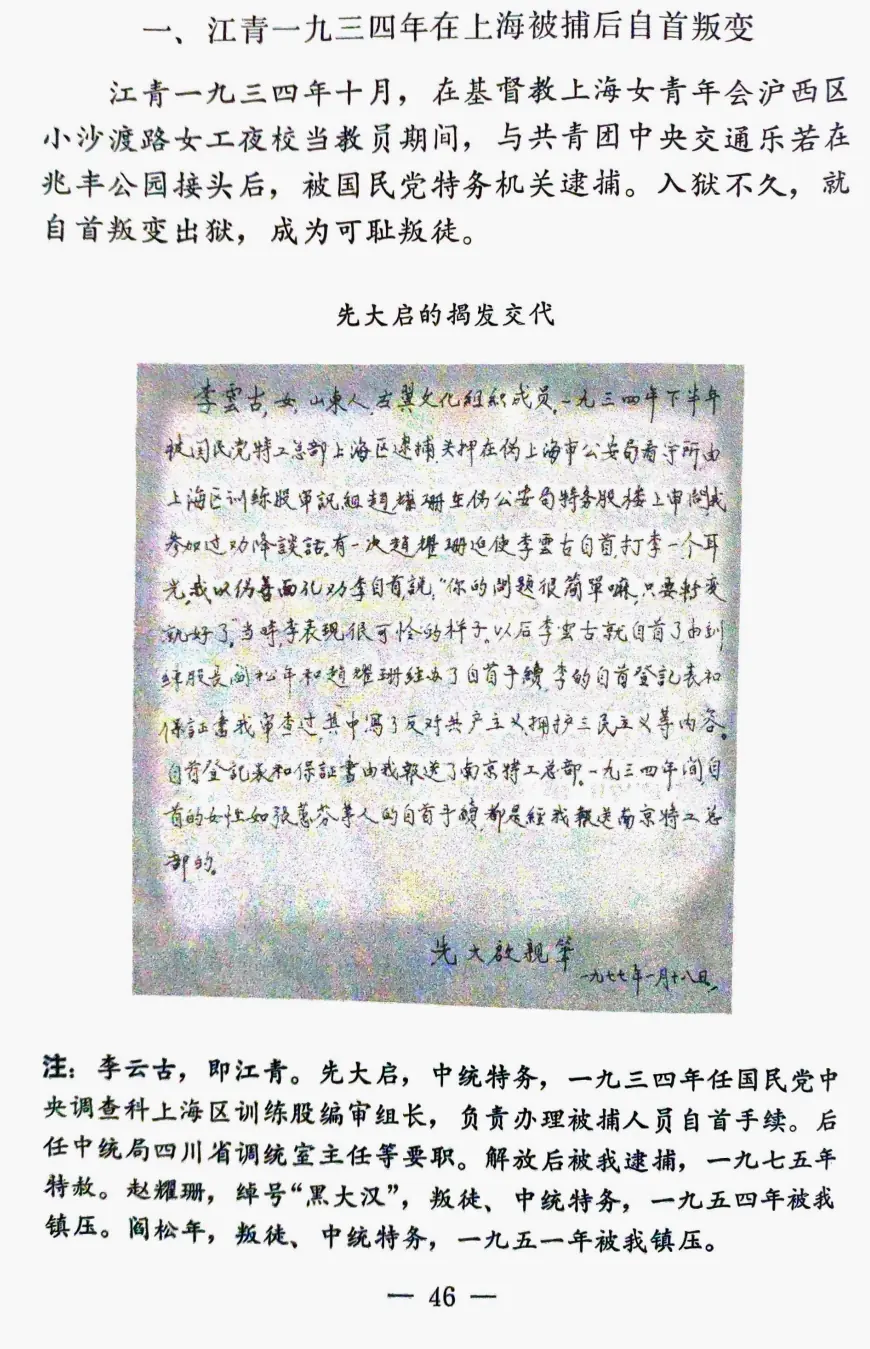 一、江青一九三四年在上海被捕后自首叛变
江青一九三四年十月，在基督教上海女青年会沪西区
小沙渡路女工夜校当教员期间，与共青团中央交通乐若在
兆丰公园接头后，被国民党特务机关逮捕。入狱不久，就
自首叛变出狱，成为可耻叛徒。
先大启的揭发交代
李雲古，女，山東人，左翼文化组织成员，一九三四年下半年
被国民党特工总部上海区逮捕，关押在伪上海市公安局看守所由
上海区训练股軍訊組趙耀珊至伪公安局特务股楼上审問我
参加过劝降談話。有一次趙耀珊迫使李雲古自首打李一个耳
光，我以伪善面孔劝李自首，説，“你的问题很简單嘛，只要轉变
就好了”当時，李表现很可怜的样子。以后李雲古就自首了由训
綀股長阎松年和趙耀珊经办了自首手續，李的自首登記表和
保証書我审查过，其中寫了反对共产主义，拥护三民主义等内容。
自首登記表和保証書由我報送了南京特工总部。一九三四年间，自
首的女性如張蕙芬等人的自首手續，都是經我報送南京特工总
部的。
先大啟親筆
一九七七年一月十八日，
注：李云古，即江青。先大启，中统特务，一九三四年任国民党中
央调查科上海区训练股编审组长，负责办理被捕人员自首手续。后
任中统局四川省调统室主任等要职。解放后被我逮捕，一九七五年
特赦。赵耀珊，绰号“黑大汉”，叛徒、中统特务，一九五四年被我
镇压。阎松年，叛徒、中统特务，一九五一年被我镇压。
— 46 —